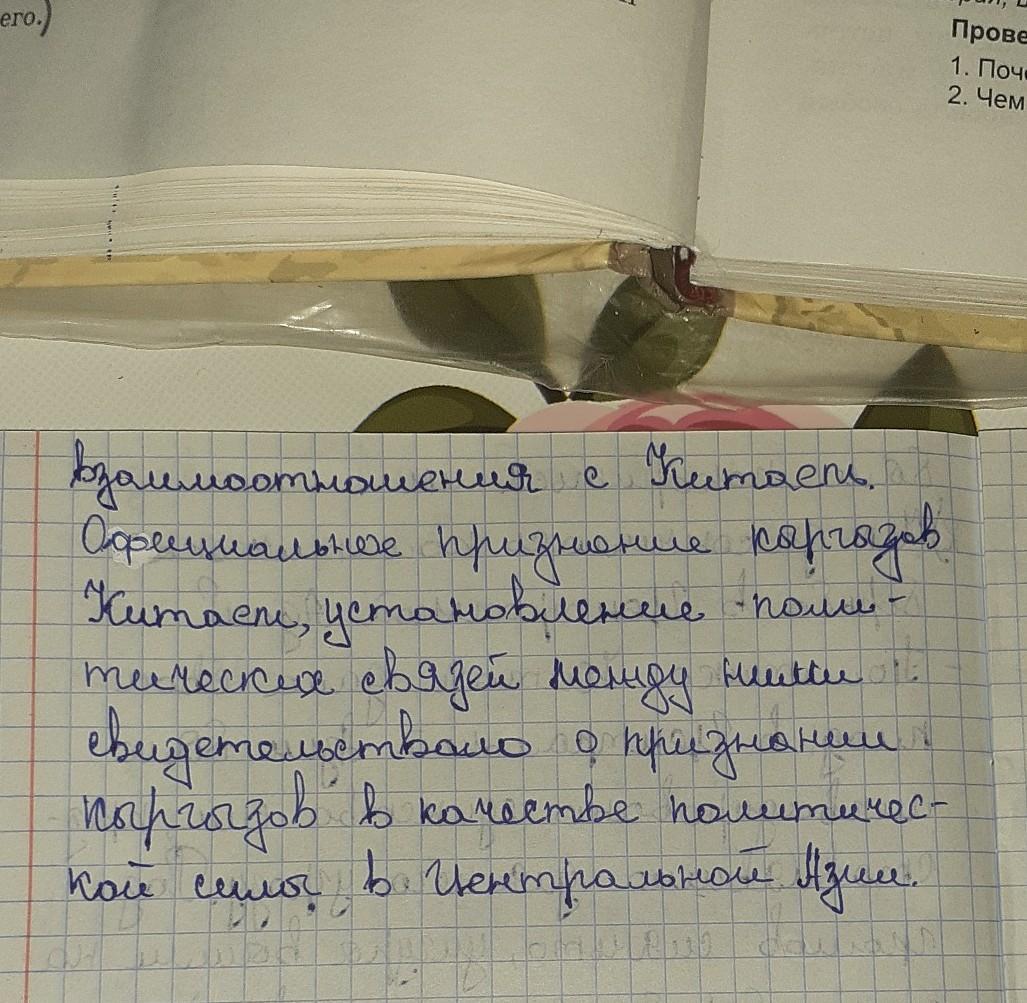 его.)
Прове
1. Поч
2. Чем
взаимоотношения с Китаем.
Официальное признание кыргызов
Китаем, установление поли-
тических связей между ними
свидетельствовало о признании
кыргызов в качестве политичес-
кой силы в Центральной Азии.